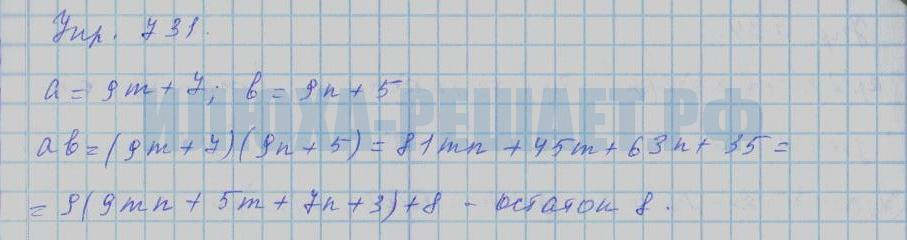 Упр. 731.
a = 9m + 7; b = 9n + 5
ИЛЮХА-РЕШАЕТ.РФ
ab = (9m + 7)(9n + 5) = 81mn + 45m + 63n + 35 =
= 9(9mn + 5m + 7n + 3) + 8 - остаток 8.